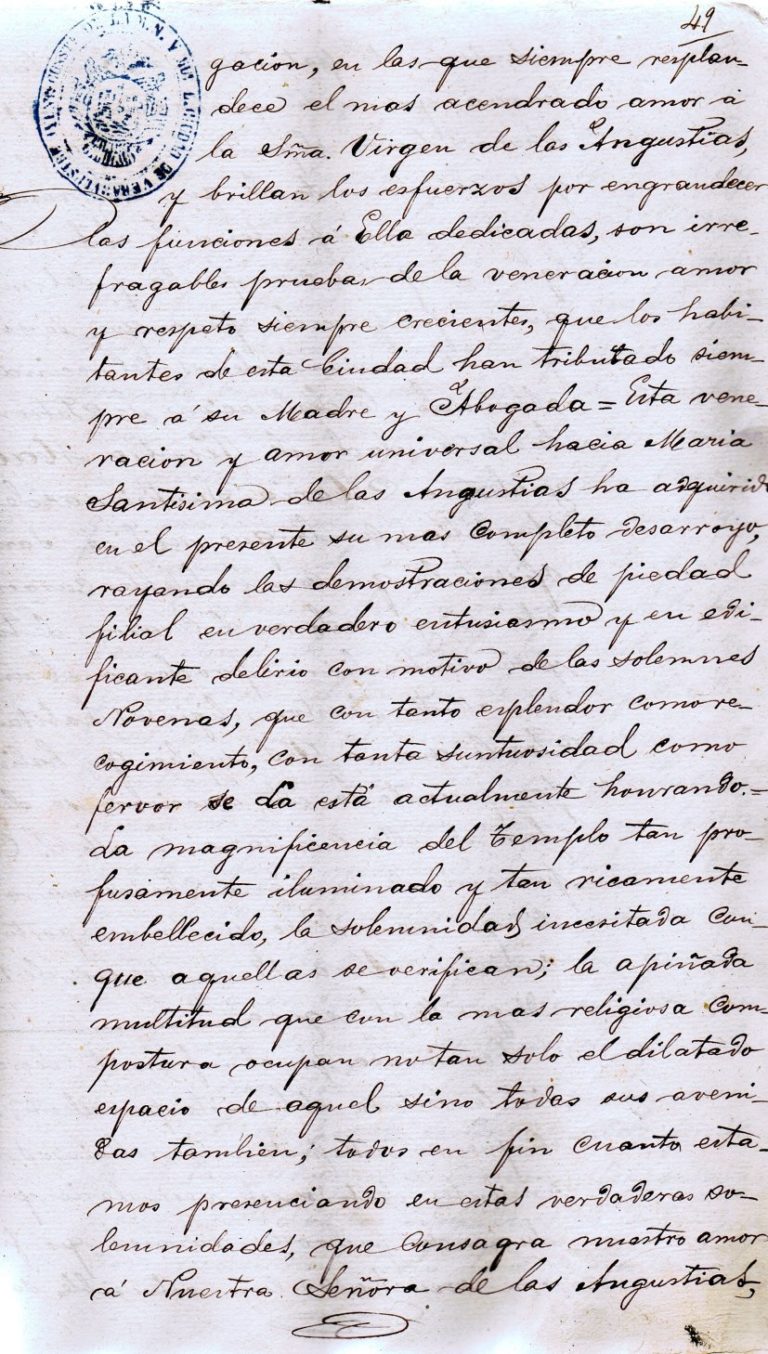 49
gacion, en las que siempre resplan-
dece el mas acendrado amor á
la Sma. Virgen de las Angustias,
y brillan los esfuerzos por engrandecer
las funciones á Ella dedicadas, son irre-
fragables pruebas de la veneracion amor
y respeto siempre crecientes, que los habi-
tantes de esta Ciudad han tributado siem-
pre á su Madre y Abogada = Esta vene-
racion y amor universal hacia Maria
Santisima de las Angustias ha adquirido
en el presente su mas completo desarroyo,
rayando las demostraciones de piedad
filial en verdadero entusiasmo y en edi-
ficante delirio con motivo de las solemnes
Novenas, que con tanto esplendor como re-
cogimiento, con tanta suntuosidad como
fervor se La está actualmente honrando.=
La magnificencia del Templo tan pro-
fusamente iluminado y tan ricamente
embellecido, la solemnidad inusitada con-
que aquellas se verifican; la apiñada
multitud que con la mas religiosa com-
postura ocupan no tan solo el dilatado
espacio de aquel sino todas sus aveni-
das tambien; todos en fin cuanto esta-
mos presenciando en estas verdaderas so-
lemnidades, que consagra nuestro amor
á Nuestra Señora de las Angustias,